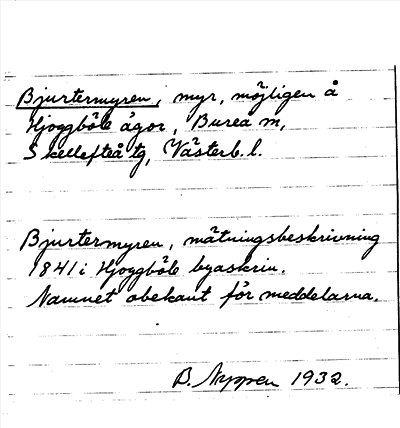 Bjurtermyren, myr, möjligen å
Hjoggböle ägor, Bureå sn,
Skellefteå tg, Västerb. l.
Bjurtermyren, mätningsbeskrivning
1841 i Hjoggböle byaskrin.
Namnet obekant för meddelarna.
B. Nyppen 1932.